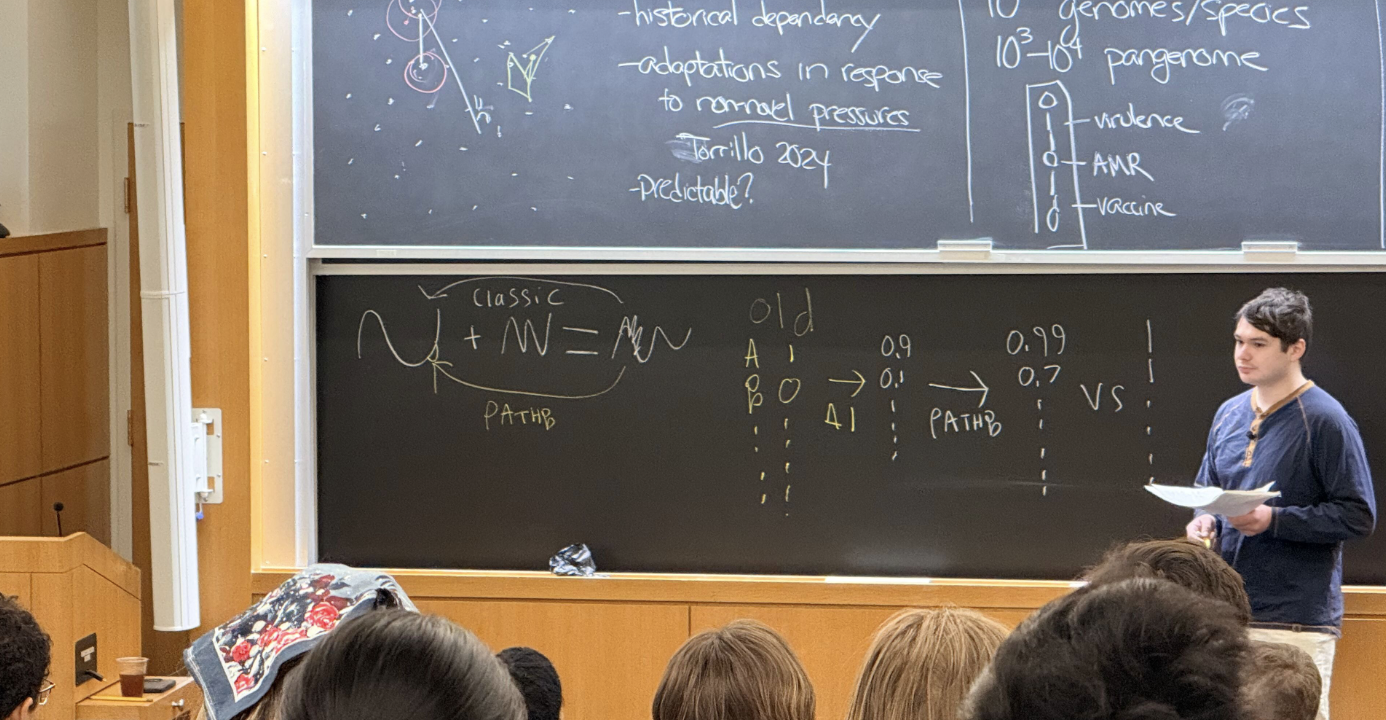 -historical dependancy
-adaptations in response
to non-novel pressures
Torrillo 2024
-Predictable?
genomes/species
10³-10⁴ pangenome
virulence
AMR
vaccine
classic
PATHB
old
A 1
B 0
AI
0.9
0.1
PATHB
0.99
0.7
VS
1
1